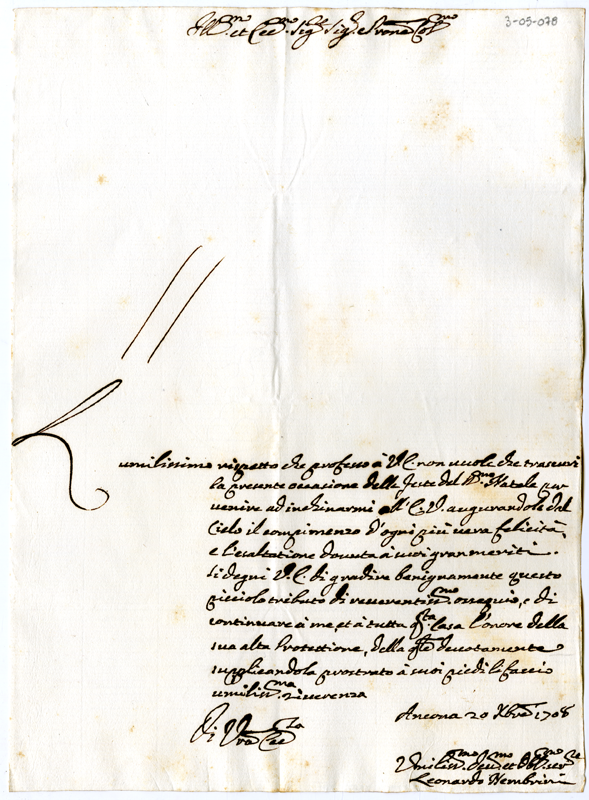 3-05-078
Ill.mo et Ecc.mo Sig.re Sig.re e Prone Col.mo
L'umilissimo rispetto che professo à V.E. non vuole che trascuri
la presente occasione delle feste del S.mo Natale per
venire ad inchinarmi all'E.V. augurandole dal
Cielo il compimento d'ogni più vera felicità,
e l'esaltatione dovuta à suoi gran meriti.
Si degni V.E. di gradire benignamente questo
picciolo tributo di reverentiss.mo ossequio, e di
continuare à me, et à tutta q.sta Casa l'onore della
sua alta Protettione, della q.le devotamente
supplicandola prostrato à suoi piedi le faccio
umiliss.ma riverenza
Ancona 20 Xbre 1708
Di Vra Ecc.za
Umiliss.mo Dev.mo et Obl.mo ser.re
Leonardo